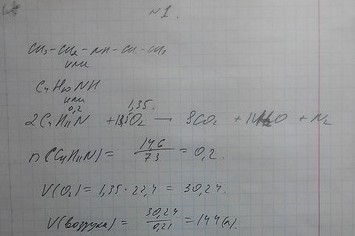 №1.
CH3-CH2-NH-CH-CH3
или
C4H10NH
или
0,2 1,35.
2C4H11N + 13,5O2 → 8CO2 + 11H2O + N2
n(C4H11N) = 14,6/73 = 0,2.
V(O2) = 1,35 · 22,4 = 30,24.
V(воздуха) = 30,24/0,21 = 144(л).